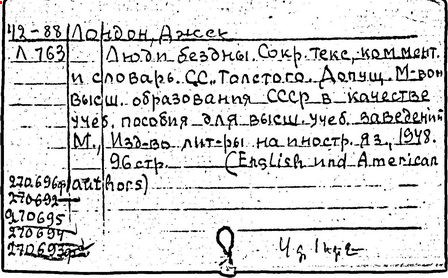 42-88 Лондон, Джек
Л 763 Люди бездны. Сокр. текс, коммент.
и словарь С.С. Толстого. Допущ. М-вом
высш. образования СССР в качестве
учеб. пособия для высш. учеб. заведений
М., Изд-во лит-ры на иностр. яз., 1948.
96 стр. (English und American
authors)
270696
270692
270695
270694
270693